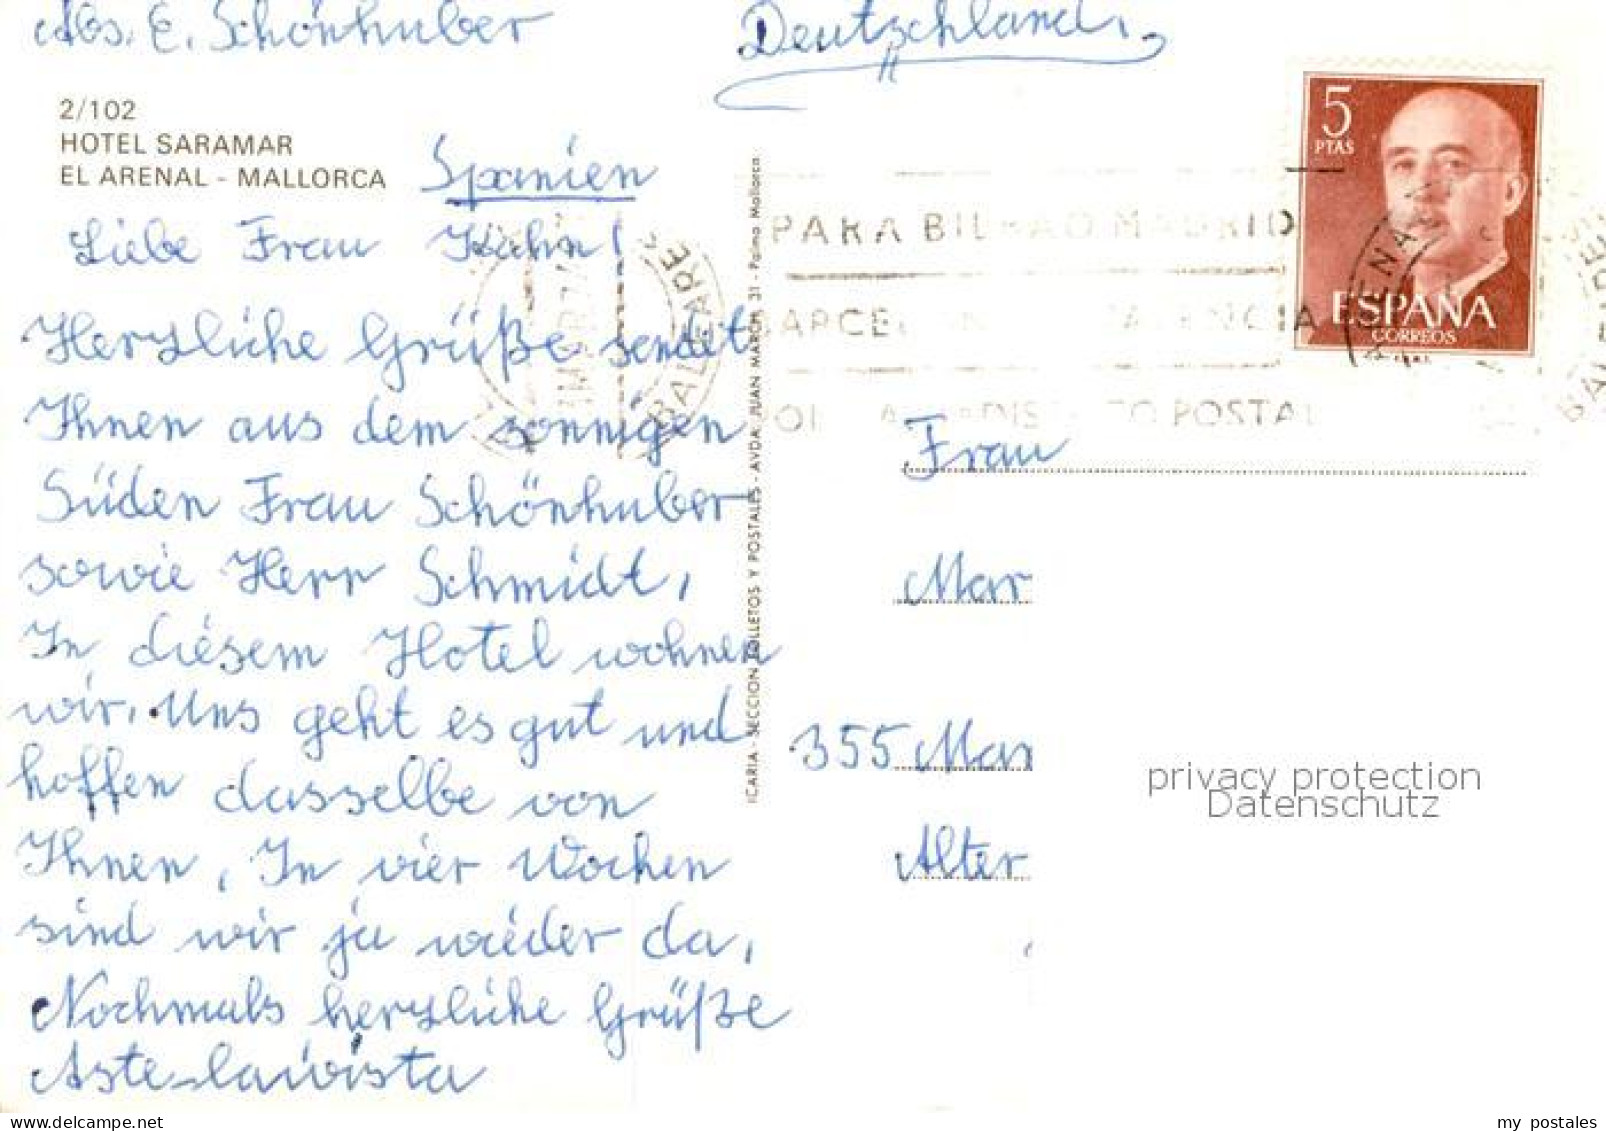 Abs. E. Schönhuber
Deutschland,
2/102
HOTEL SARAMAR
EL ARENAL - MALLORCA
Spanien
5
PTAS
ESPAÑA
CORREOS
PARA BILBAO MADRID
POSTAL
BALEARES
Liebe Frau Kuhn!
Herzliche Grüße sendet
Ihnen aus dem sonnigen
Süden Frau Schönhuber
sowie Herr Schmidt,
In diesem Hotel wohnen
wir. Uns geht es gut und
hoffen dasselbe von
Ihnen, In vier Wochen
sind wir ja wieder da,
Nochmals herzliche Grüße
Aste-lawista
ICARIA - SECCION FOLLETOS Y POSTALES - AVDA. JUAN MARCH 31 - Palma Mallorca
Frau
Mar
355 Mar
Alter
privacy protection
Datenschutz
my postales